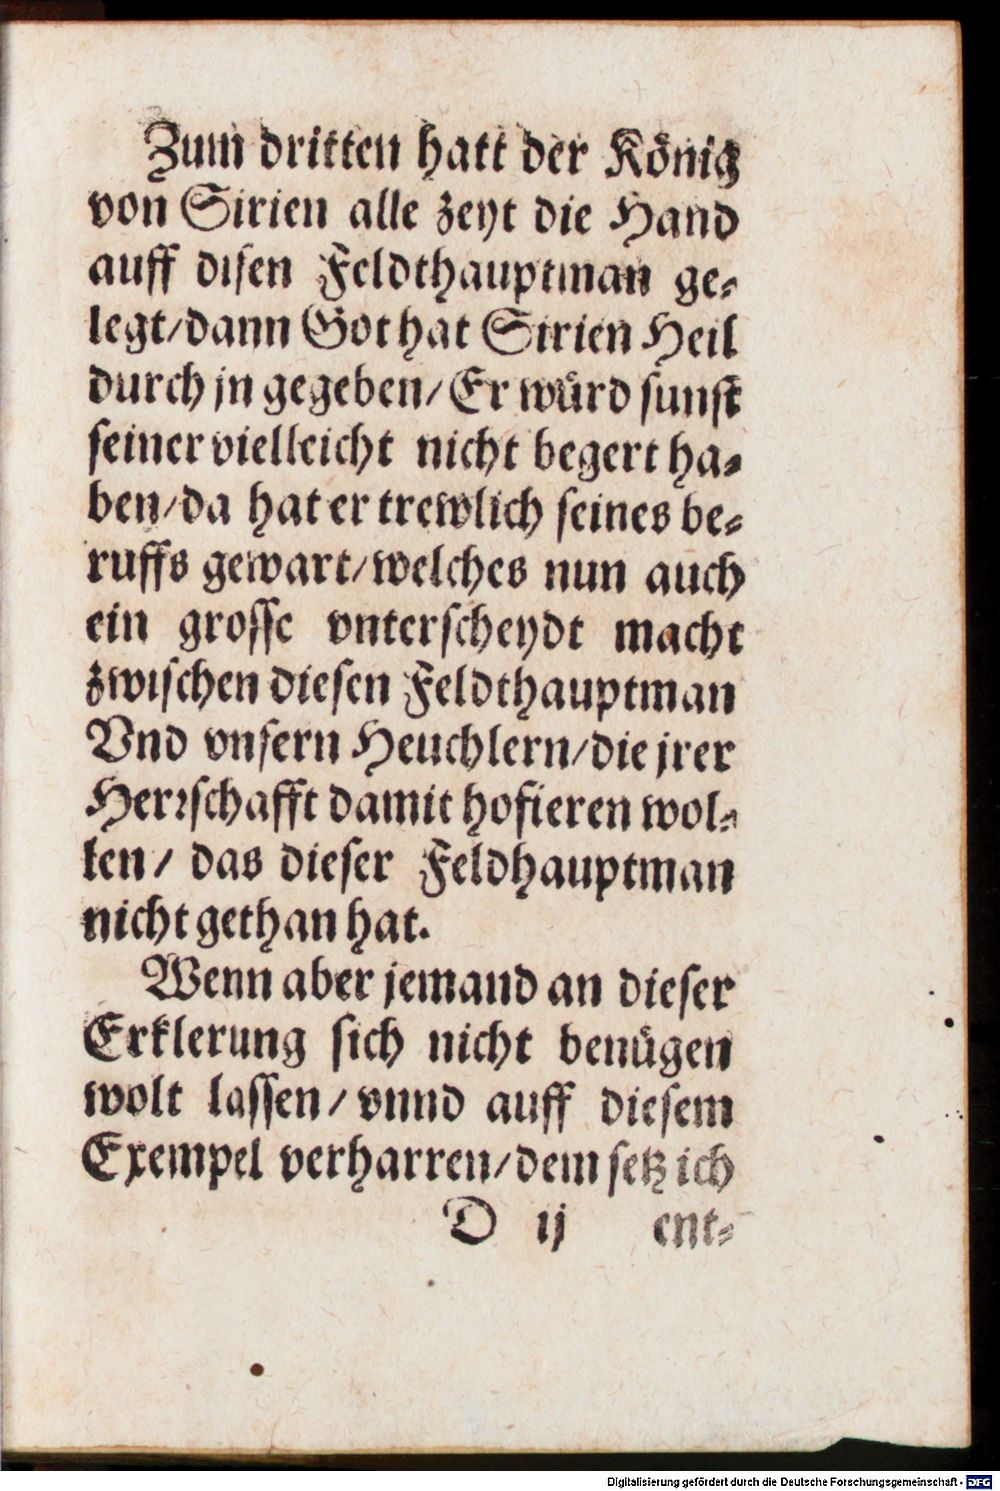 Zum dritten hatt der König
von Sirien alle zeyt die Hand
auff disen Feldthauptman ge⸗
legt/dann Got hat Sirien Heil
durch jn gegeben/Er würd sunst
seiner vielleicht nicht begert ha⸗
ben/da hat er trewlich seines be⸗
ruffs gewart/welches nun auch
ein grosse vnterscheydt macht
zwischen diesen Feldthauptman
Vnd vnsern Heuchlern/die jrer
Herrschafft damit hofieren wol⸗
len/ das dieser Feldhauptman
nicht gethan hat.
Wenn aber jemand an dieser
Erklerung sich nicht benügen
wolt lassen/vnnd auff diesem
Exempel verharren/dem setz ich
D ij ent⸗
Digitalisierung gefördert durch die Deutsche Forschungsgemeinschaft - DFG